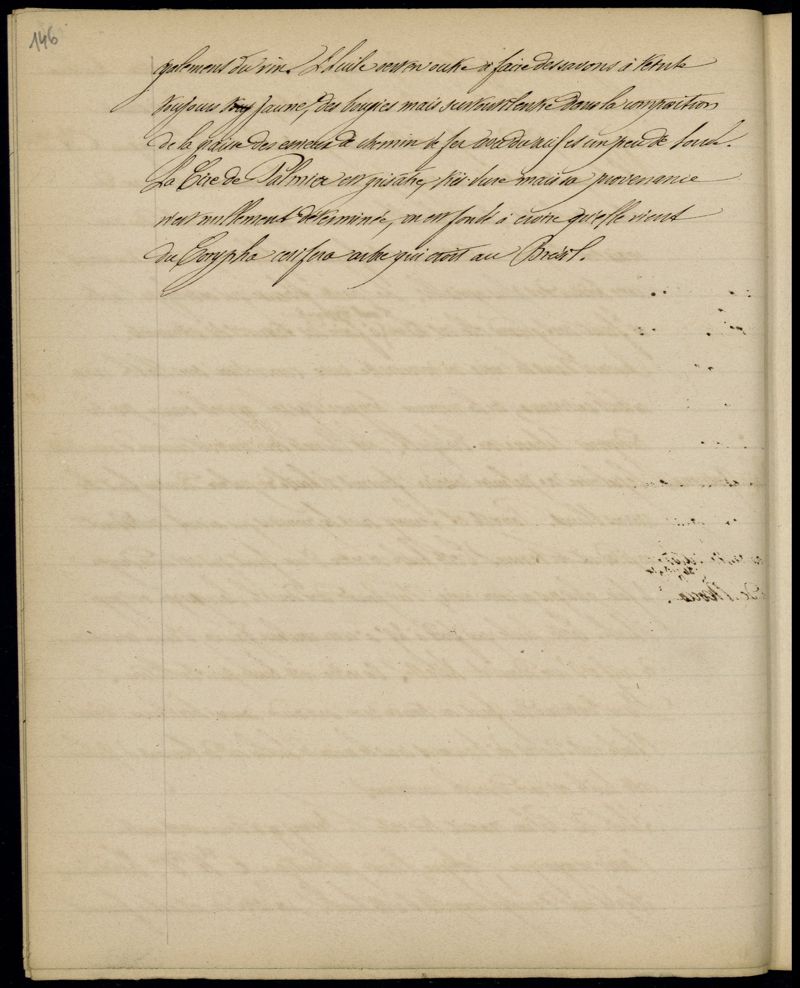 146
également du vin. L'huile sert en outre à faire des savons à teinte
toujours jaune, des bougies mais surtout entre dans la composition
de la graisse des essieux de chemin de fer avec du suif et un peu de soude.
La Cire de Palmier est grisâtre, très dure mais sa provenance
n'est nullement déterminée, on est fondé à croire qu'elle vient
du Corypha cerifera arbre qui croît au Brésil.